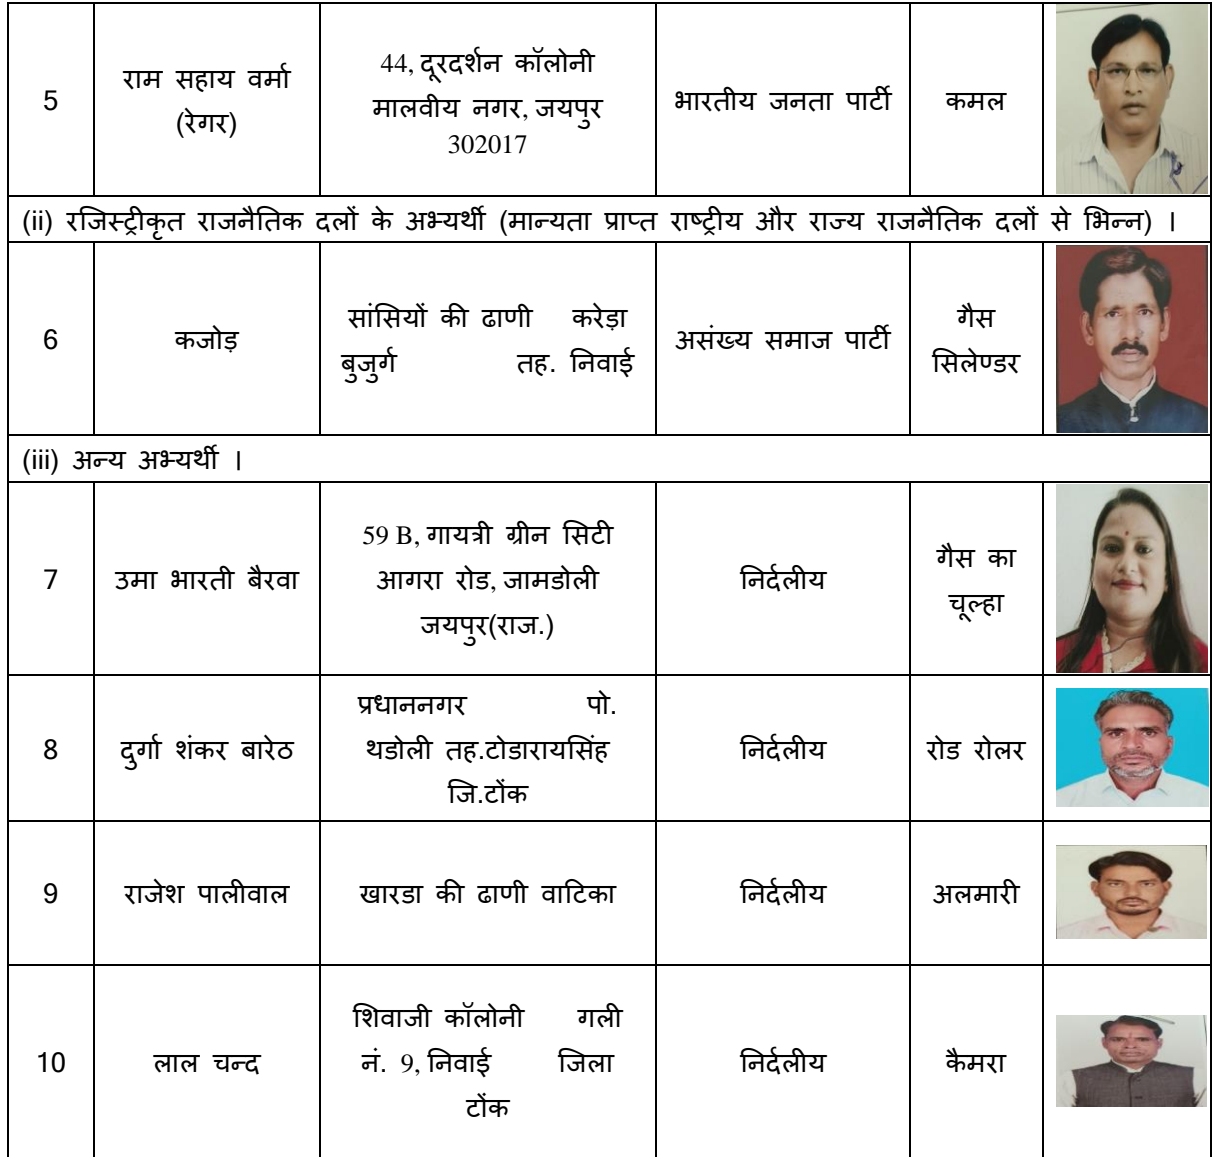 5
राम सहाय वर्मा
(रेगर)
44, दूरदर्शन कॉलोनी
मालवीय नगर, जयपुर
302017
भारतीय जनता पार्टी
कमल
(ii) रजिस्ट्रीकृत राजनैतिक दलों के अभ्यर्थी (मान्यता प्राप्त राष्ट्रीय और राज्य राजनैतिक दलों से भिन्न) ।
6
कजोड़
सांसियों की ढाणी करेड़ा
बुजुर्ग तह. निवाई
असंख्य समाज पार्टी
गैस
सिलेण्डर
(iii) अन्य अभ्यर्थी ।
7
उमा भारती बैरवा
59 B, गायत्री ग्रीन सिटी
आगरा रोड, जामडोली
जयपुर(राज.)
निर्दलीय
गैस का
चूल्हा
8
दुर्गा शंकर बारेठ
प्रधाननगर पो.
थडोली तह.टोडारायसिंह
जि.टोंक
निर्दलीय
रोड रोलर
9
राजेश पालीवाल
खारडा की ढाणी वाटिका
निर्दलीय
अलमारी
10
लाल चन्द
शिवाजी कॉलोनी गली
नं. 9, निवाई जिला
टोंक
निर्दलीय
कैमरा